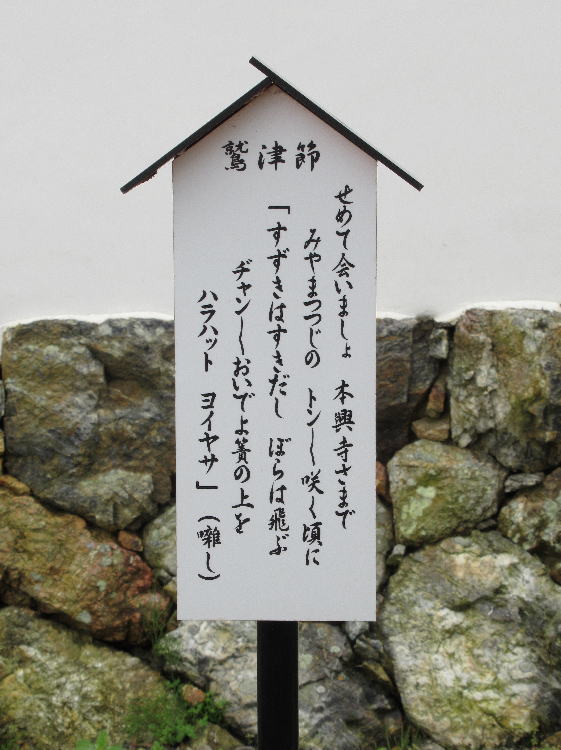 鷲津節
せめて会いましょ 本興寺さまで
みやまつつじの トン〳〵咲く頃に
「すずきはすきだし ぼらは飛ぶ
ヂャン〳〵おいでよ簀の上を
ハラハット ヨイヤサ」(囃し)